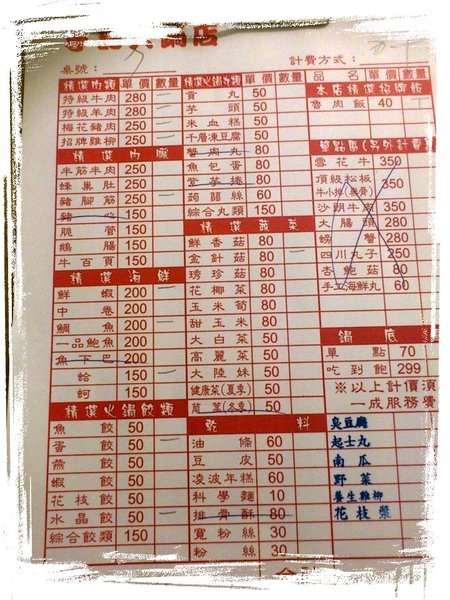 鍋店
桌號：
計費方式：
精選肉類 單價 數量
特級牛肉 280
特級羊肉 280
梅花豬肉 280
招牌雞柳 250
精選內臟
半筋半肉 250
蜂巢肚 250
豬腳筋 250
豬心 150
脆管 150
鵝腸 150
牛百頁 150
精選海鮮
鮮蝦 200
中卷 200
鯛魚 200
一品鮑魚 200
魚下巴 200
蛤 150
蚵 150
精選火鍋餃類
魚餃 50
蛋餃 50
燕餃 50
蝦餃 50
花枝餃 50
水晶餃 50
綜合餃類 150
精選火鍋丸類 單價 數量
貢丸 50
芋頭 50
米血糕 50
千層凍豆腐 50
魯肉丸 80
魚包蛋 80
蒟蒻絲 60
綜合丸類 150
精選蔬菜
鮮香菇 80
金針菇 80
琇珍菇 80
花椰菜 80
玉米筍 80
甜玉米 80
大白菜 50
高麗菜 50
大陸妹 50
健康菜(夏季) 50
茼蒿(冬季) 50
乾料
油條 60
豆皮 50
凌波年糕 60
科學麵 10
排骨酥 80
寬粉 30
粉絲 30
品名 單價 數量
本店精選招牌飯
魯肉飯 40
單點區(另外計費)
雪花牛 350
頂級松板
牛小排(無骨) 350
沙朗牛肉 350
大腸頭 280
螃蟹 280
四川丸子 250
杏鮑菇 80
手工海鮮丸 60
鍋底
單點 70
吃到飽 299
※以上計價須
一成服務費
臭豆腐
起士丸
南瓜
野菜
養生雞柳
花枝漿